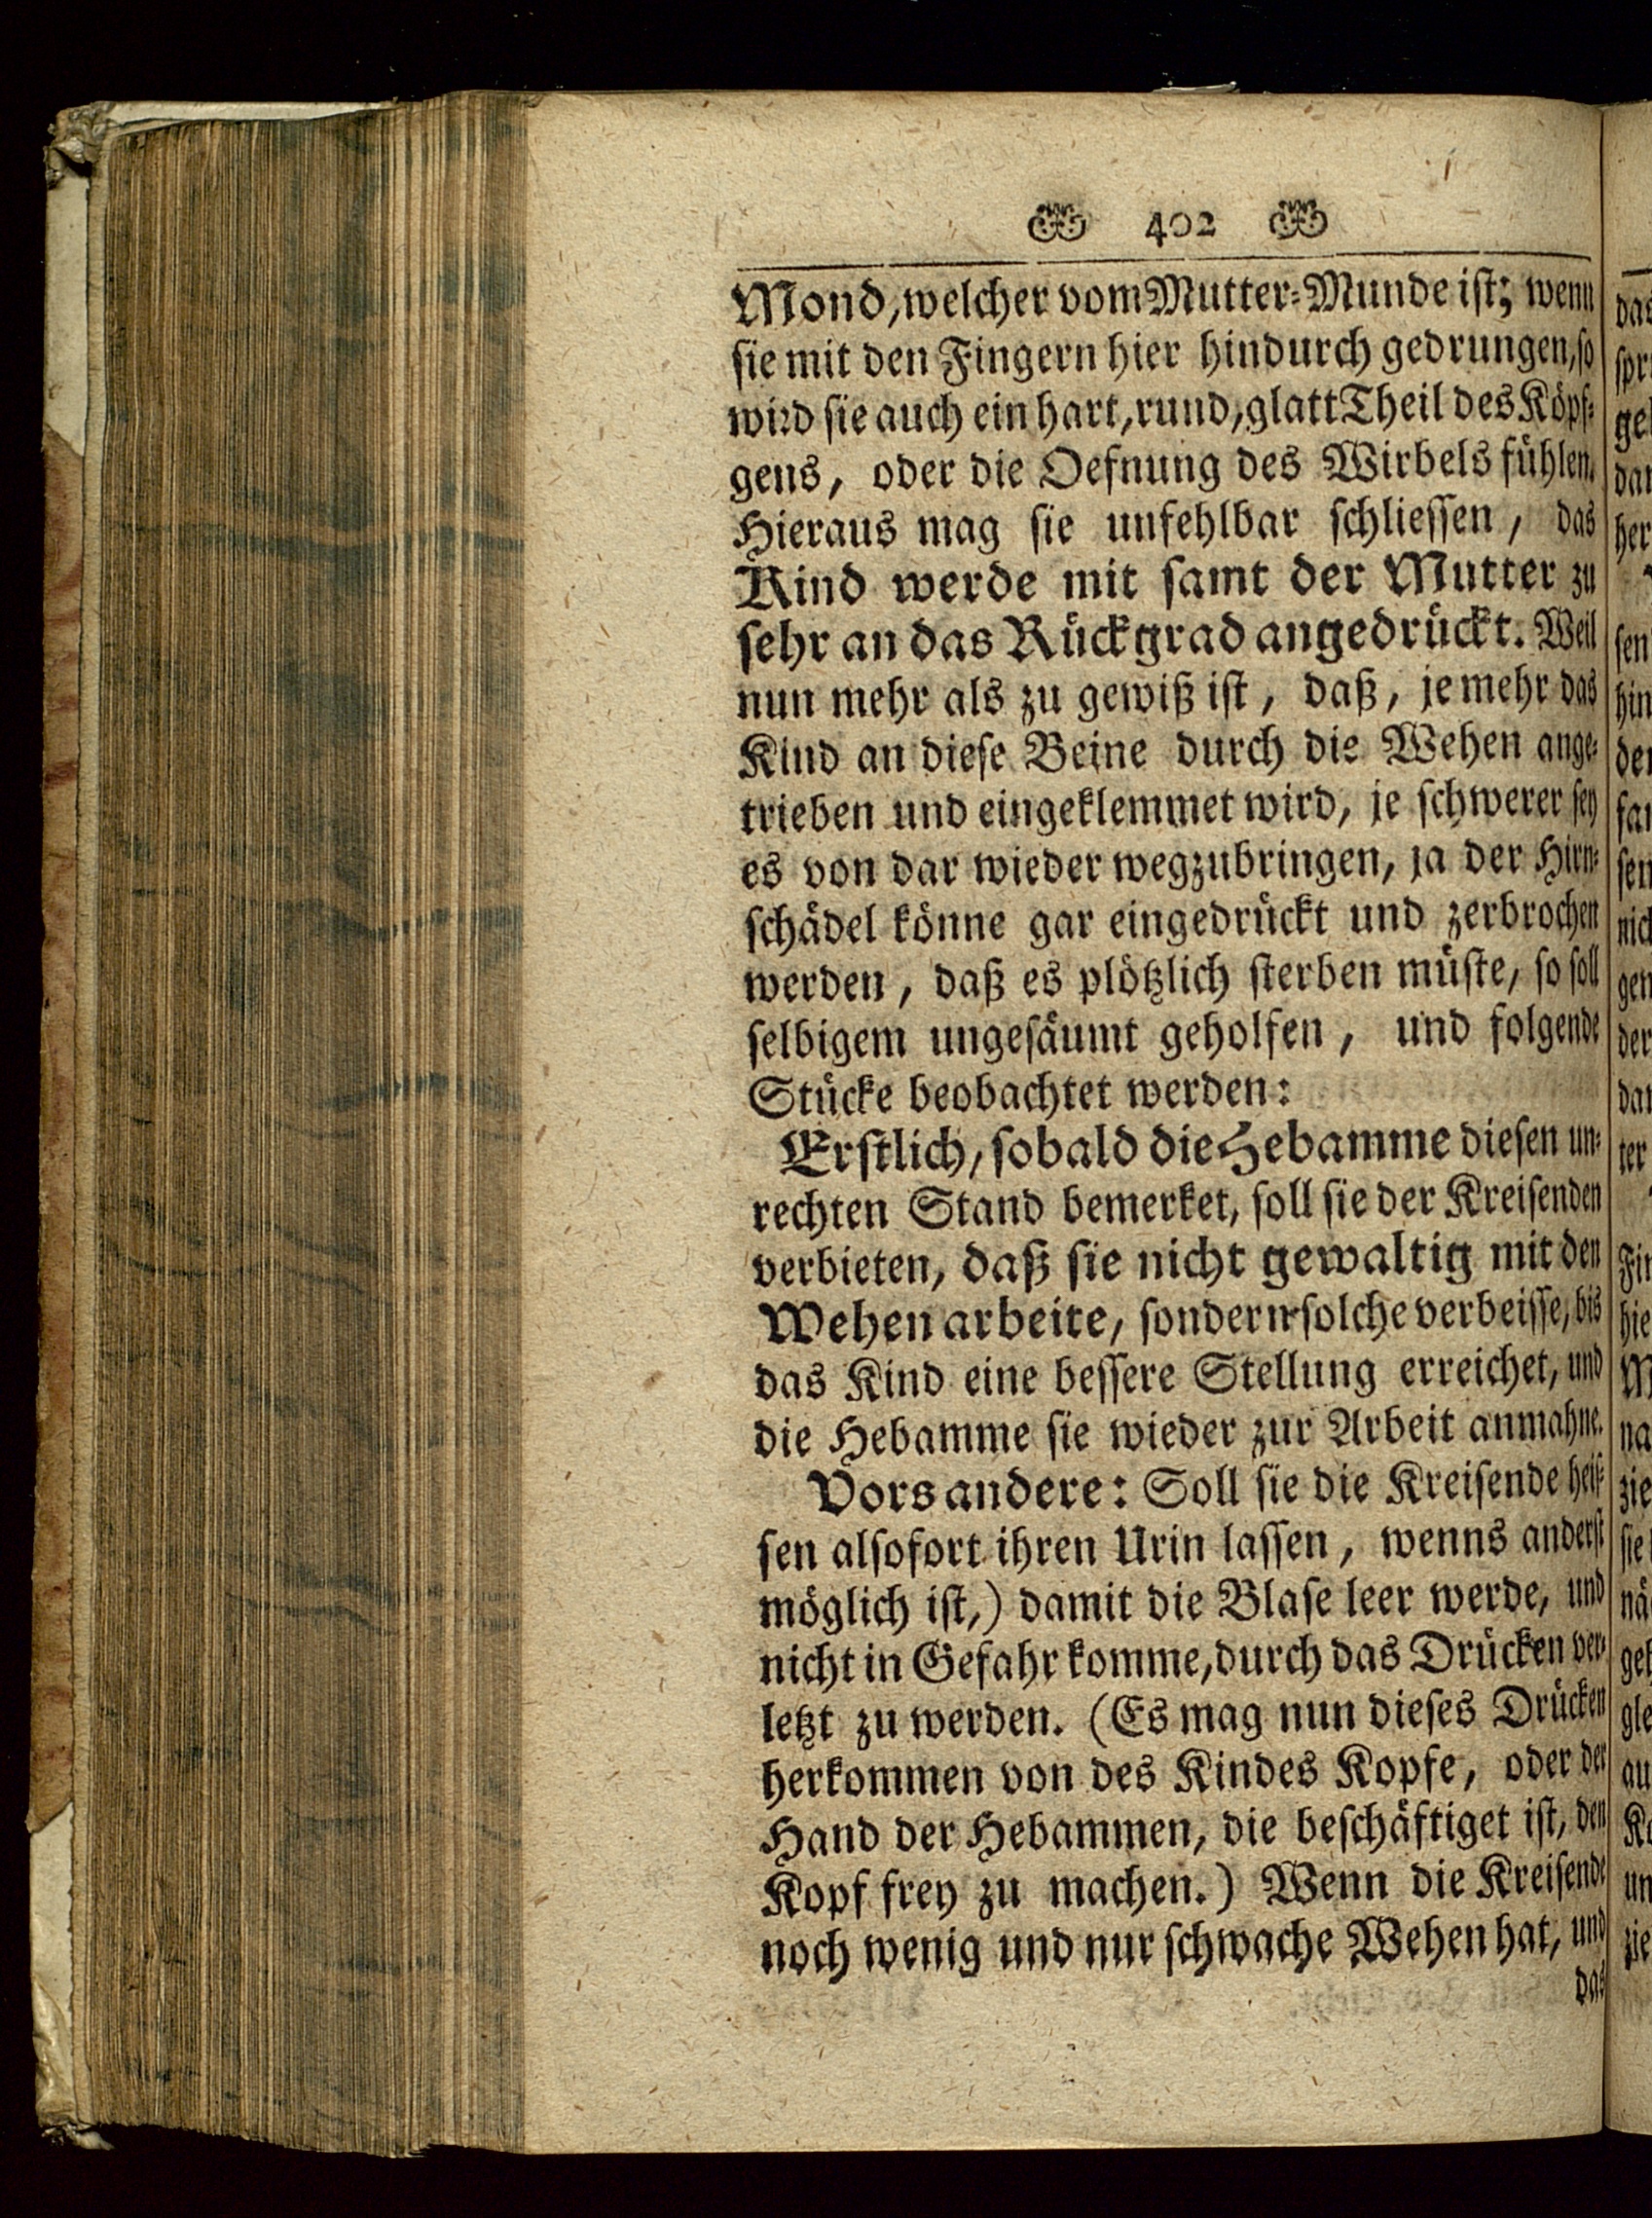 402
Mond, welcher vom Mutter-Munde ist; wenn
sie mit den Fingern hier hindurch gedrungen, so
wird sie auch ein hart, rund, glatt Theil des Köpf-
gens, oder die Oefnung des Wirbels fühlen.
Hieraus mag sie unfehlbar schliessen, das
Kind werde mit samt der Mutter zu
sehr an das Rückgrad angedrückt. Weil
nun mehr als zu gewiß ist, daß, je mehr das
Kind an diese Beine durch die Wehen ange-
trieben und eingeklemmet wird, je schwerer sey
es von dar wieder wegzubringen, ja der Hirn-
schädel könne gar eingedrückt und zerbrochen
werden, daß es plötzlich sterben müste, so soll
selbigem ungesäumt geholfen, und folgende
Stücke beobachtet werden:
Erstlich, sobald die Hebamme diesen un-
rechten Stand bemerket, soll sie der Kreisenden
verbieten, daß sie nicht gewaltig mit den
Wehen arbeite, sondern solche verbeisse, bis
das Kind eine bessere Stellung erreichet, und
die Hebamme sie wieder zur Arbeit anmahne.
Vors andere: Soll sie die Kreisende heis-
sen alsofort ihren Urin lassen, wenns anderst
möglich ist,) damit die Blase leer werde, und
nicht in Gefahr komme, durch das Drücken ver-
letzt zu werden. (Es mag nun dieses Drücken
herkommen von des Kindes Kopfe, oder der
Hand der Hebammen, die beschäftiget ist, den
Kopf frey zu machen.) Wenn die Kreisende
noch wenig und nur schwache Wehen hat, und
das